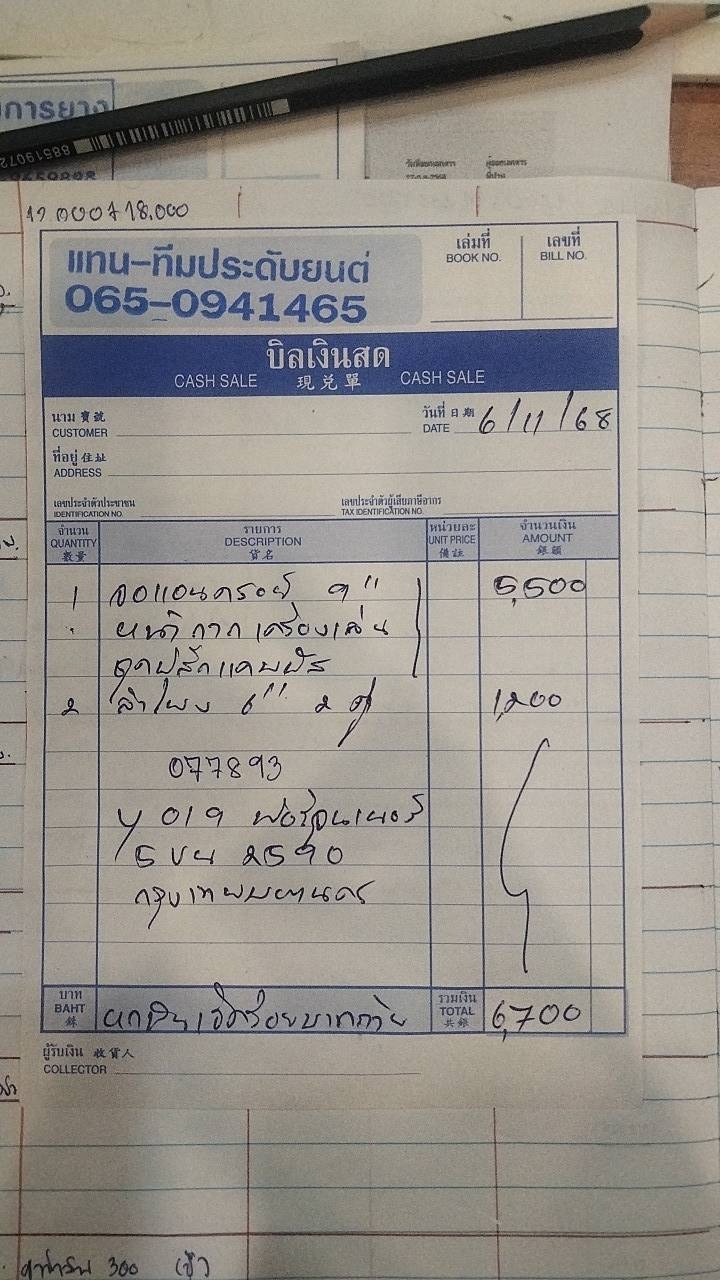 การยาง
8851907
วันที่ออกเอกสาร ผู้ออกเอกสาร
18,000
แทน-ทีมประดับยนต์
065-0941465
เล่มที่ เลขที่
BOOK NO. BILL NO.
บิลเงินสด
CASH SALE 現兑單 CASH SALE
นาม 寶號
CUSTOMER
วันที่ 日期
DATE 6/11/68
ที่อยู่ 住址
ADDRESS
เลขประจำตัวประชาชน
IDENTIFICATION NO.
เลขประจำตัวผู้เสียภาษีอากร
TAX IDENTIFICATION NO.
จำนวน รายการ หน่วยละ จำนวนเงิน
QUANTITY DESCRIPTION UNIT PRICE AMOUNT
數量 貨名 備註 銀額
1 จอแอนดรอย์ 9" 5,500
หน้ากากเครื่องเล่น
ชุดปลั๊กแคนบัส
2 ลำโพง 6" 2 คู่ 1,200
077893
ฟอร์จูนเนอร์
5 ขน 2590
กรุงเทพมหานคร
บาท
BAHT
銖
หกพันเจ็ดร้อยบาทถ้วน
รวมเงิน
TOTAL 6,700
共銀
ผู้รับเงิน 收貨人
COLLECTOR
300